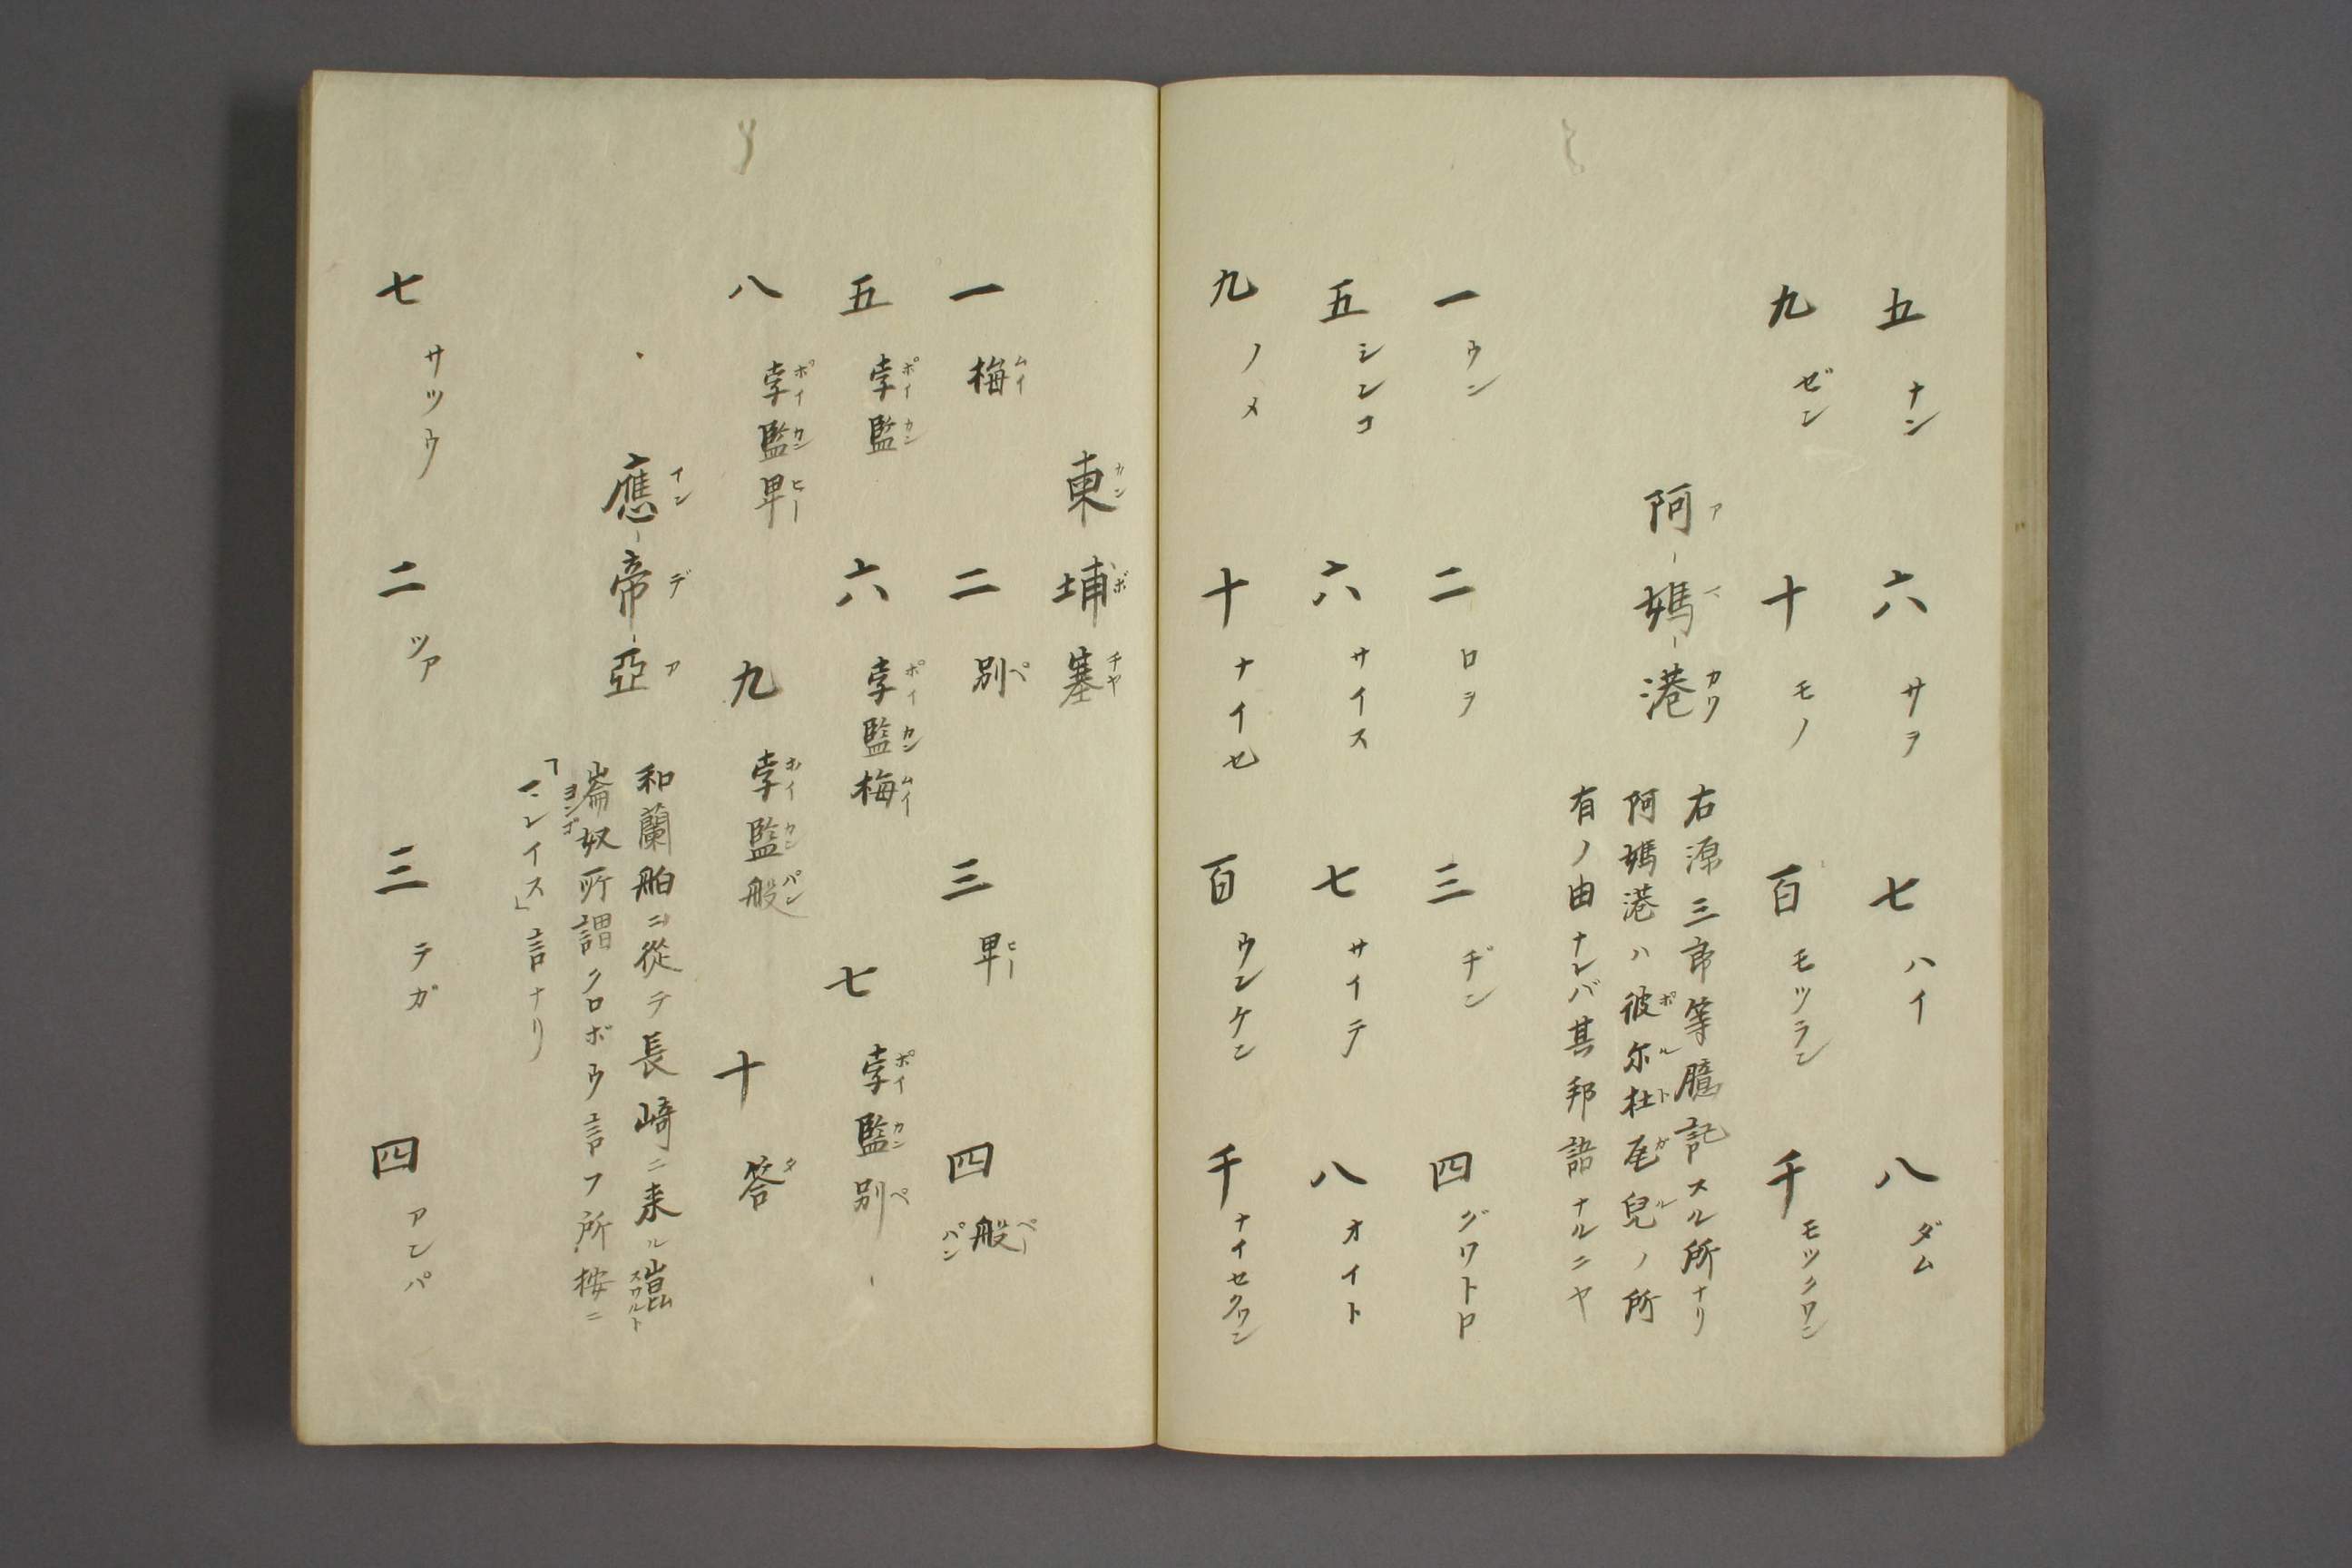 五 ナン 六 サヲ 七 ハイ 八 ダム
九 ゼン 十 モノ 百 モツラン 千 モツクワン
阿媽港 アマカワ
右源三郎等臆記スル所ナリ
阿媽港ハ彼尓杜尾兒ノ所 ポルトガル
有ノ由ナレバ其邦語ナルニヤ
一 ウン 二 ロヲ 三 ヂン 四 グワトロ
五 シンコ 六 サイス 七 サイテ 八 オイト
九 ノメ 十 ナイセ 百 ウンケン 千 ナイセクワン
東埔塞 カンボチヤ
一 梅 ムイ 二 別 ペ 三 卑 ヒー 四 般 ペー パン
五 孛監 ポイカン 六 孛監梅 ポイカンムイ 七 孛監別 ポイカンペ
八 孛監卑 ポイカンヒー 九 孛監般 ホイカンパン 十 答 タ
應帝亞 インデア
和蘭舶ニ從テ長崎ニ来ル崑 スワルト
崙奴所謂クロボウ言フ所按ニ ヨンゴ
「マレイス」言ナリ
七 サツウ 二 ツア 三 テガ 四 アンパ